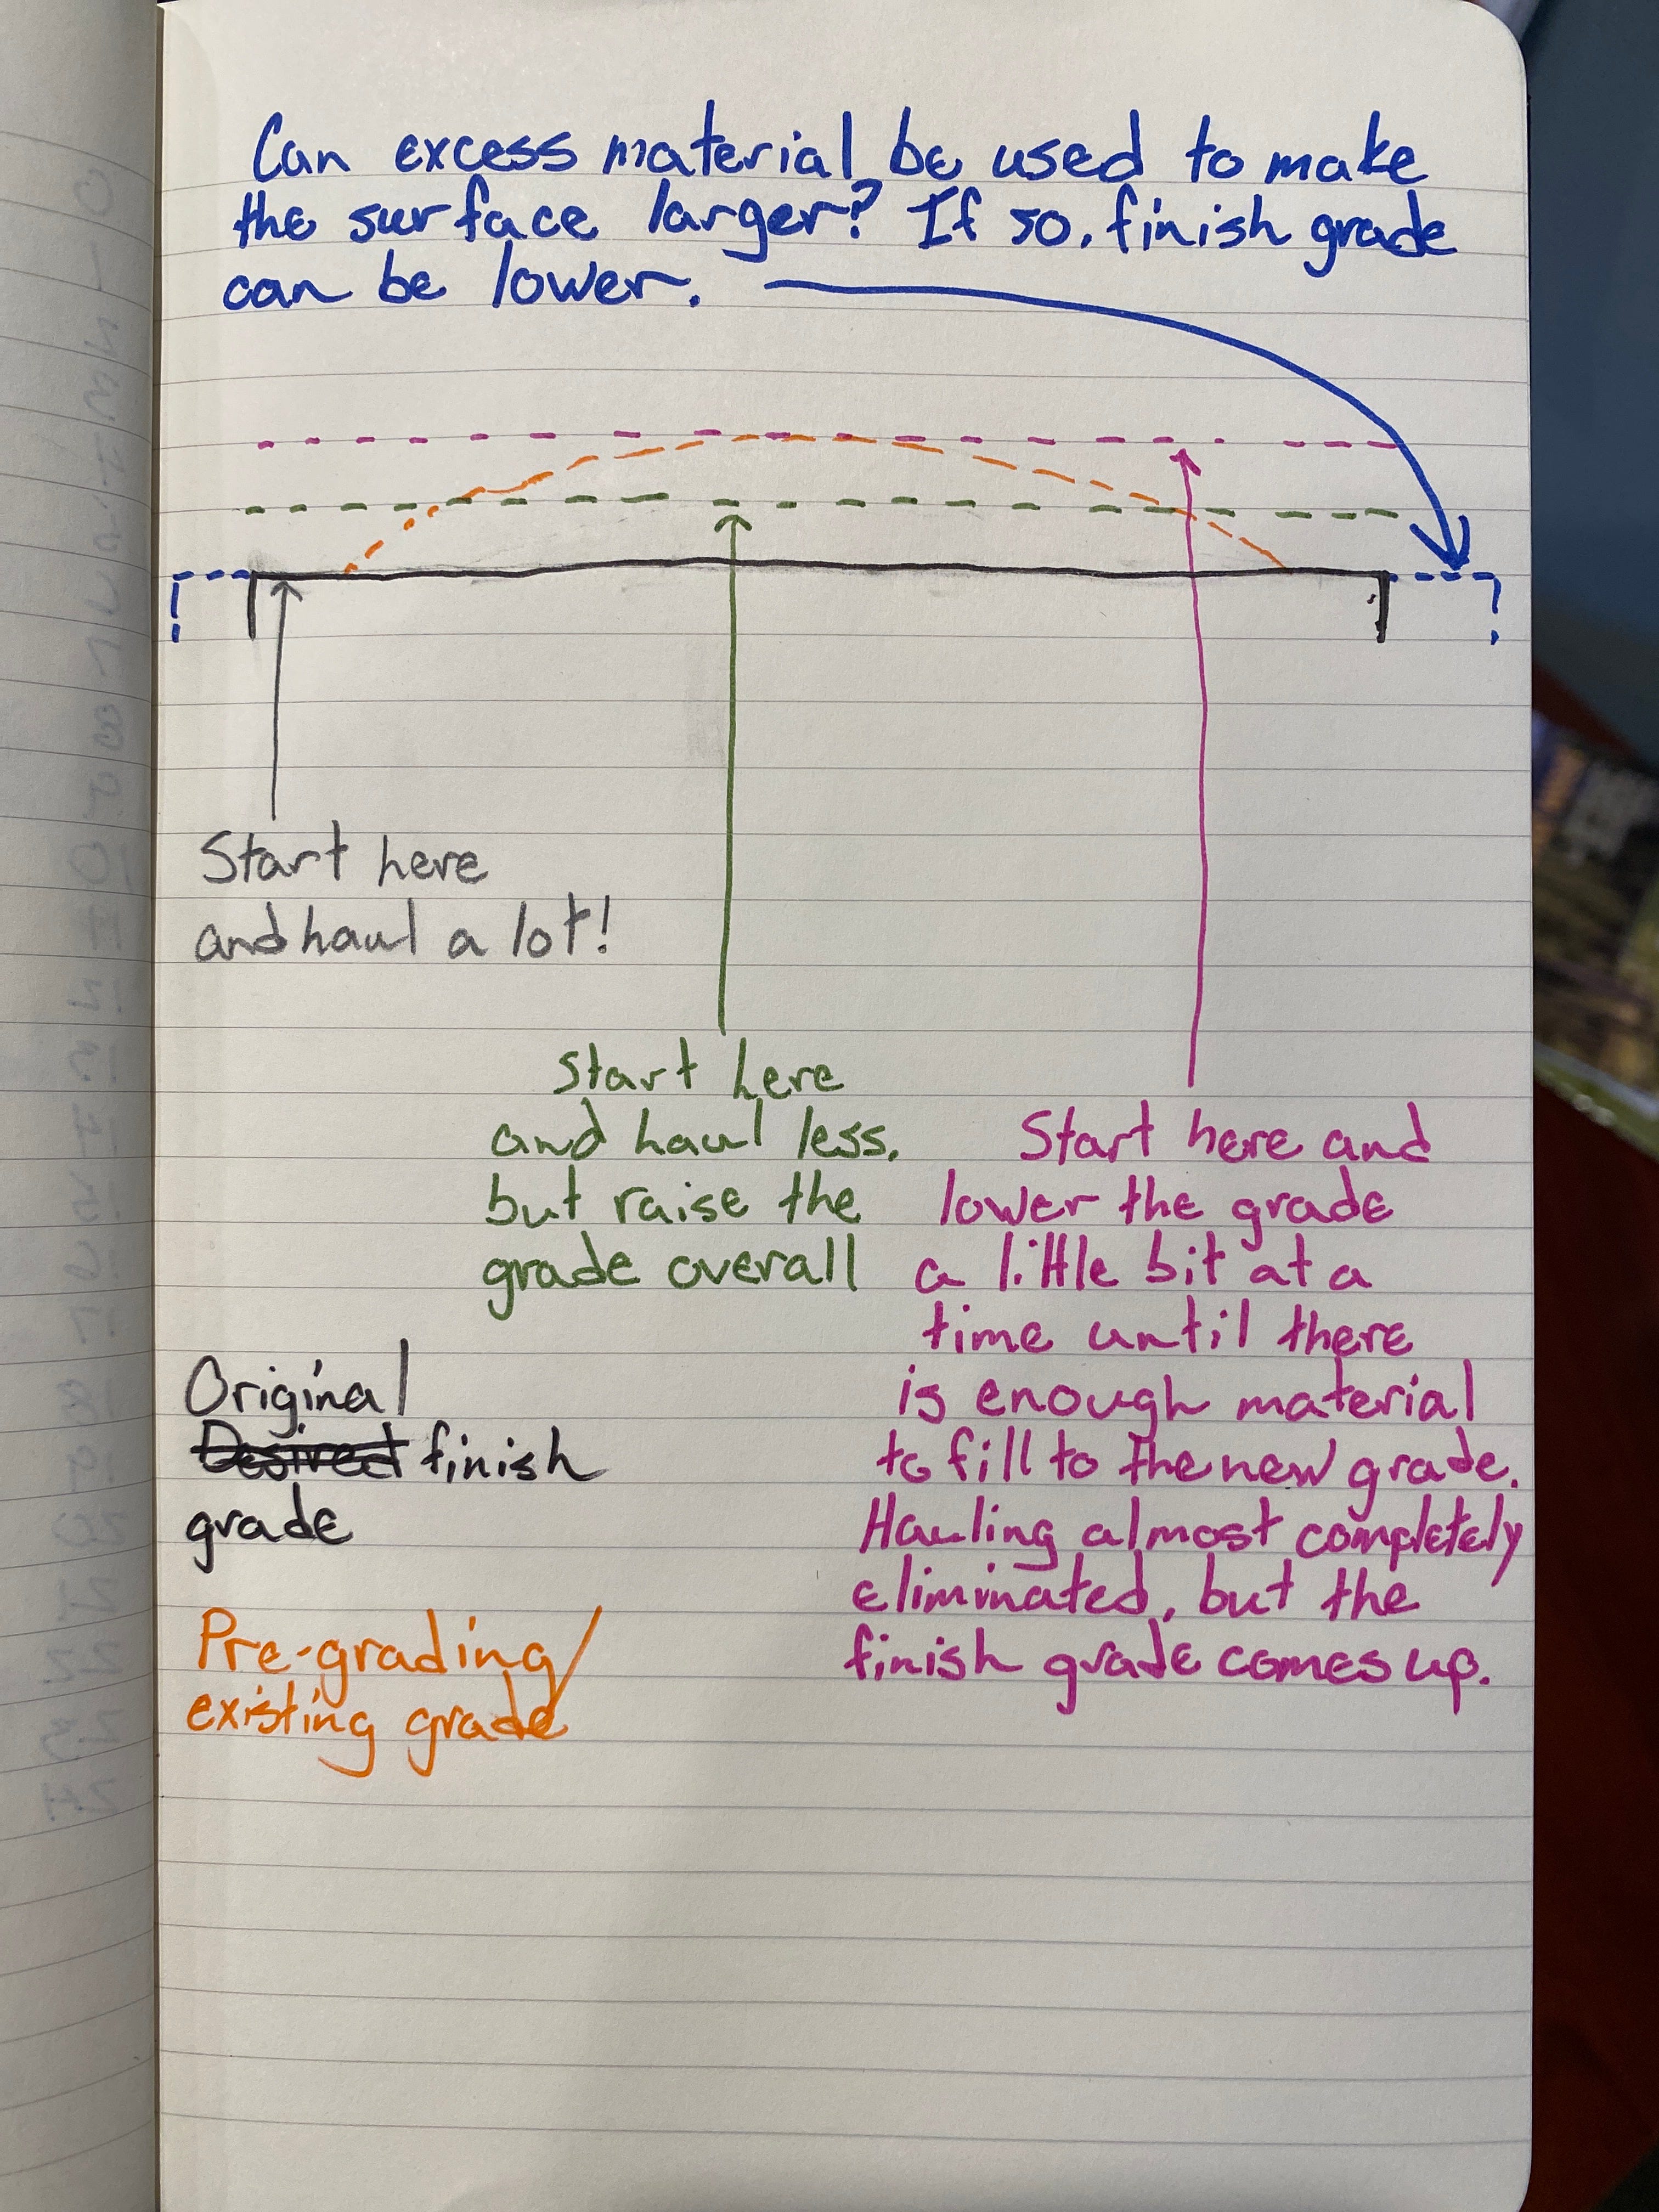 Can excess material be used to make
the surface larger? If so, finish grade
can be lower.
Start here
and haul a lot!
Start here
and haul less,
but raise the
grade overall
Start here and
lower the grade
a little bit at a
time until there
is enough material
to fill to the new grade.
Hauling almost completely
eliminated, but the
finish grade comes up.
Original
Desired finish
grade
Pre-grading/
existing grade